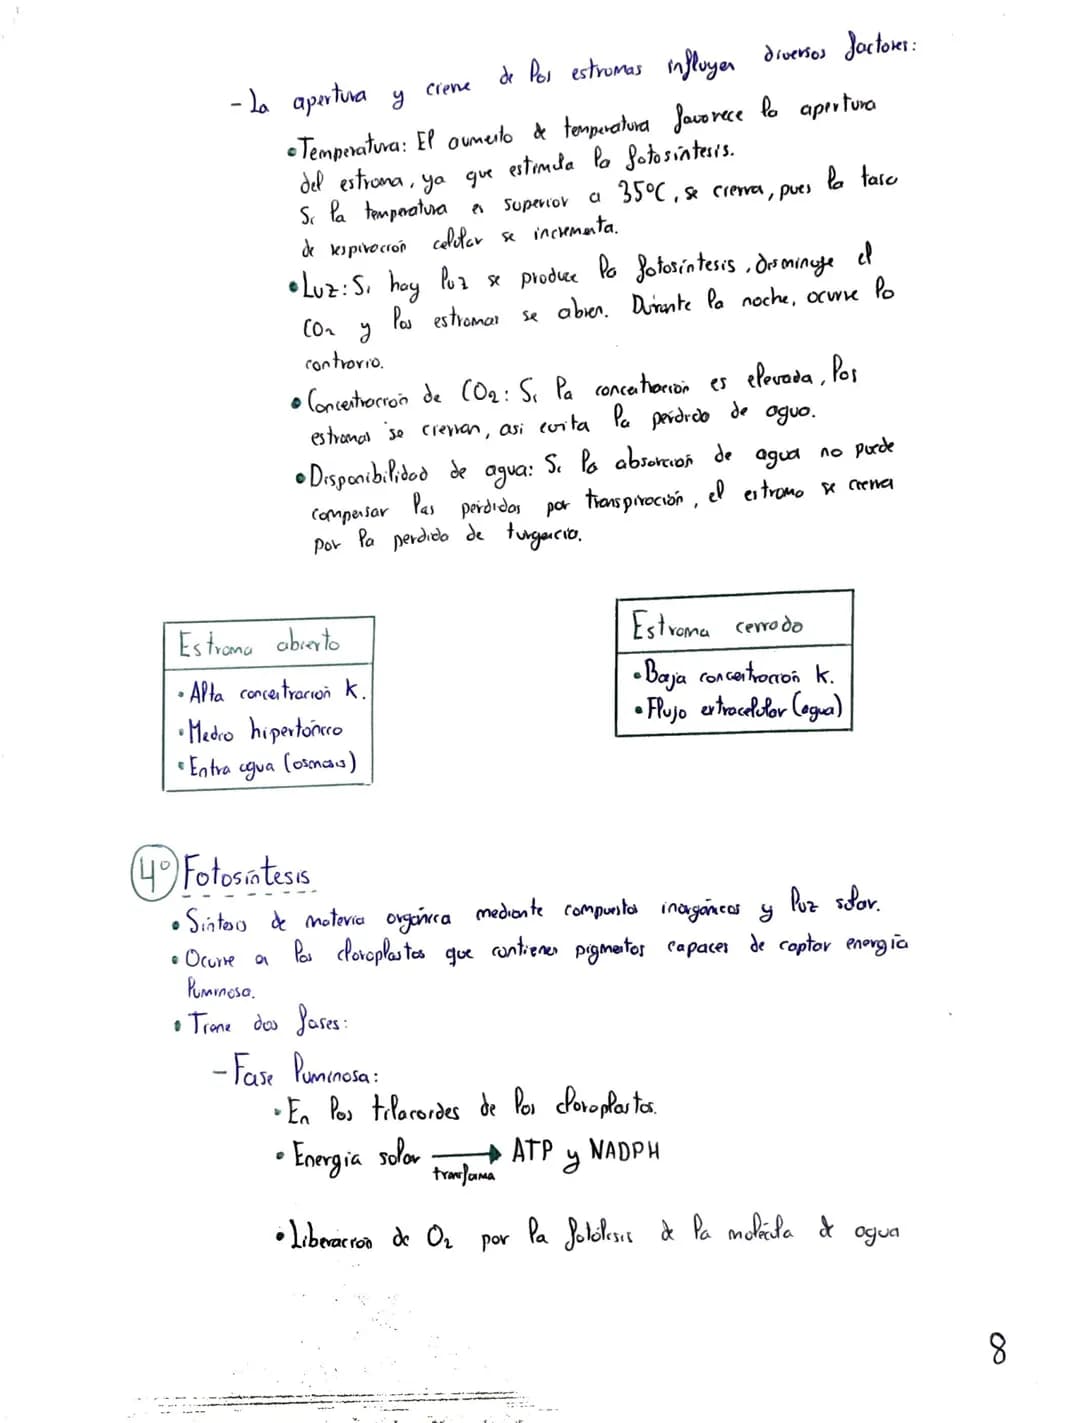 - La apertura y cierre de los estromas influyen diversos factores:
• Temperatura: El aumento de temperatura favorece la apertura
del estroma, ya que estimula la fotosíntesis.
Si la temperatura es superior a 35ºC, se cierra, pues la tasa
de respiración celular se incrementa.
• Luz: Si hay luz se produce la fotosíntesis, disminuye el
CO2 y los estromas se abren. Durante la noche, ocurre lo
contrario.
• Concentración de CO2: Si la concentración es elevada, los
estromas se cierran, asi evita la pérdida de agua.
• Disponibilidad de agua: Si la absorción de agua no puede
compensar las pérdidas por transpiración, el estroma se cierra
por la perdida de turgencia.
Estroma abierto
• Alta concentración K.
• Medio hipertónico
• Entra agua (osmosis)
Estroma cerrado
• Baja concentración K.
• Flujo extracelular (agua)
4º Fotosíntesis
• Síntesis de materia orgánica mediante compuestos inorgánicos y luz solar.
• Ocurre en los cloroplastos que contienen pigmentos capaces de captar energía
luminosa.
• Tiene dos fases:
- Fase luminosa:
• En los tilacoides de los cloroplastos.
• Energía solar → ATP y NADPH
transforma
• Liberación de O2 por la fotólisis de la molécula de agua
8